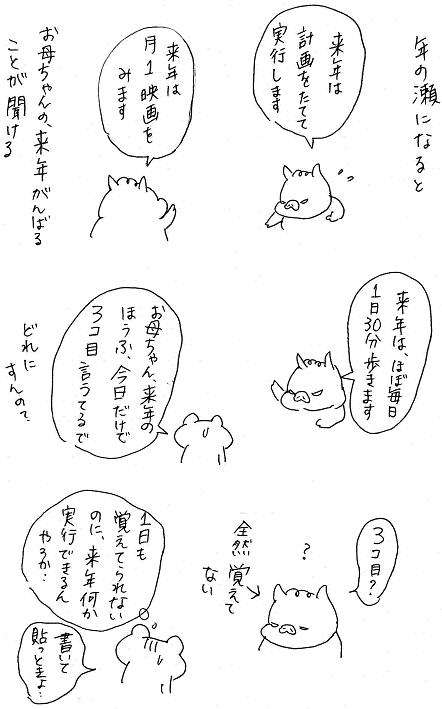 年の瀬になると
来年は
計画をたてて
実行します
来年は
月1映画を
みます
お母ちゃんの、来年がんばる
ことが聞ける
来年は、ほぼ毎日
1日30分歩きます
お母ちゃん、来年の
ほうふ、今日だけで
3コ目言うてるで
どれに
すんの?
3コ目?
?
全然覚えて
ない
1日も
覚えてられない
のに、来年何か
実行できるん
やろか…
書いて
貼っときよ…